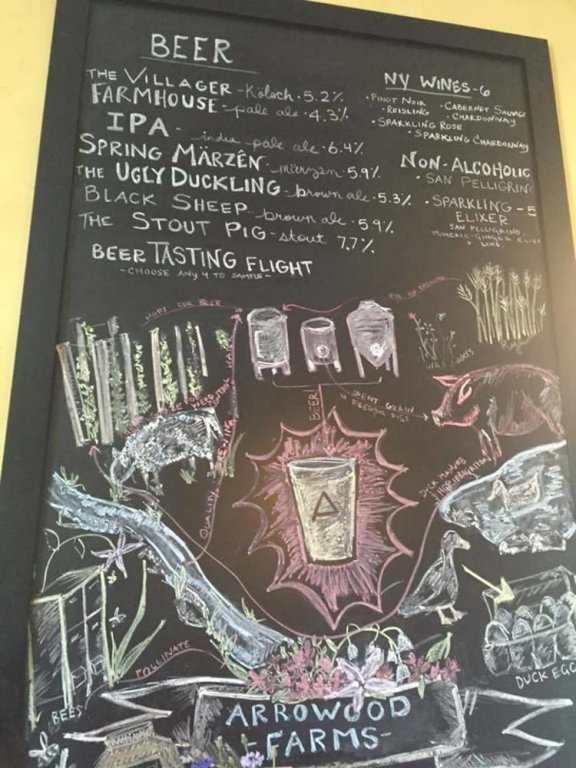 BEER
THE VILLAGER - Kolsch · 5.2%
FARMHOUSE - pale ale · 4.3%
IPA - india pale ale · 6.4%
SPRING MÄRZÊN - märzen · 5.9%
THE UGLY DUCKLING - brown ale · 5.3%
BLACK SHEEP - brown ale · 5.9%
THE STOUT PIG - stout 7.7%
BEER TASTING FLIGHT
- CHOOSE ANY 4 TO SAMPLE -
NY WINES - 6
· PINOT NOIR · CABERNET SAUVAG
· REISLING · CHARDONNAY
· SPARKLING ROSE
· SPARKLING CHARDONNAY
NON-ALCOHOLIC
· SAN PELLIGRIN
· SPARKLING - 5
ELIXER
SAN PELLIGRINO
TUMERIC-GINGER ELIXE
LIME
HOPS FOR BEER
RYE
BEER
SPENT GRAIN
FEEDING PIGS
QUALITY BREWING WATER
DUCK MANURE
POLLINATE
BEES
DUCK EGG
ARROWOOD
- FARMS -